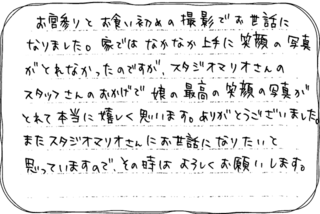 お宮参りとお食い初めの撮影でお世話に
なりました。家ではなかなか上手に笑顔の写真
がとれなかったのですが、スタジオマリオさんの
スタッフさんのおかげで娘の最高の笑顔の写真が
とれて本当に嬉しく思います。ありがとうございました。
またスタジオマリオさんにお世話になりたいと
思っていますので、その時はよろしくお願いします。